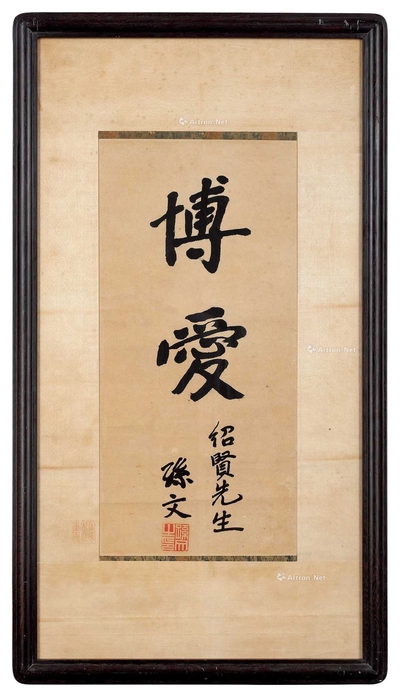 博愛
紹賢先生
孫文
孫文之印
Artron.Net
Artron.Net
Artron.Net